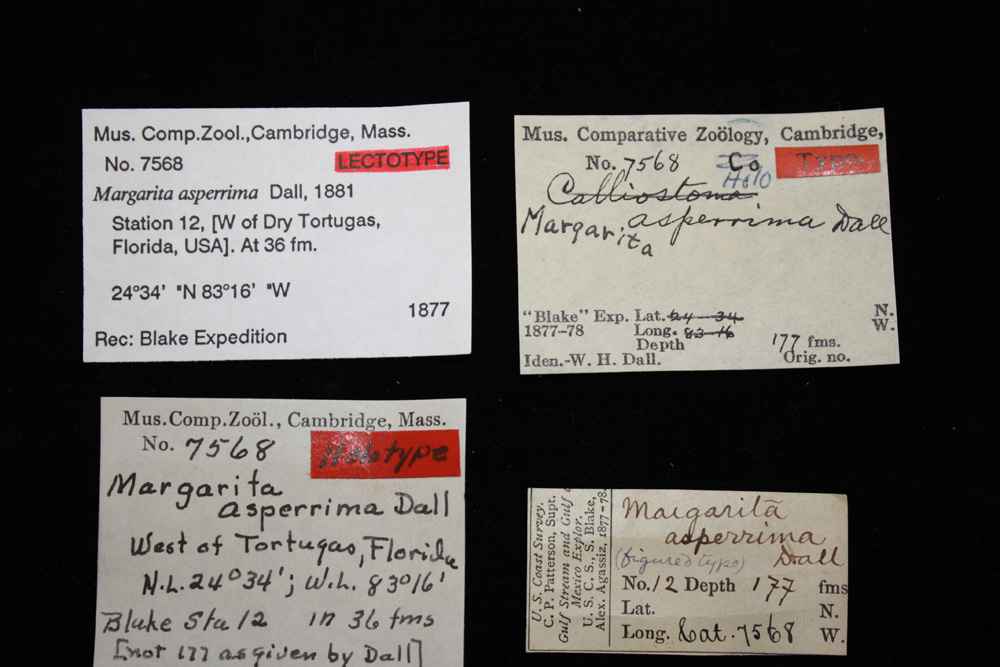 Mus. Comp.Zool.,Cambridge, Mass.
No. 7568 LECTOTYPE
Margarita asperrima Dall, 1881
Station 12, [W of Dry Tortugas,
Florida, USA]. At 36 fm.
24°34' "N 83°16' "W
1877
Rec: Blake Expedition
Mus. Comparative Zoölogy, Cambridge,
No. 7568 Co Type.
Holo
Calliostoma
Margarita asperrima Dall
"Blake" Exp. Lat. 24-34 N.
1877-78 Long. 83-16 W.
Depth 177 fms.
Iden.-W. H. Dall. Orig. no.
Mus.Comp.Zoöl., Cambridge, Mass.
No. 7568 Holotype
Margarita
asperrima Dall
West of Tortugas, Florida
N.L. 24°34'; W.L. 83°16'
Blake Sta 12 in 36 fms
[not 177 as given by Dall]
U. S. Coast Survey,
C. P. Patterson, Supt.
Gulf Stream and Gulf
Mexico Explor.
U. S. C. S., S. Blake,
Alex. Agassiz, 1877-78.
Margarita
asperrima
(figured type) Dall
No. 12 Depth 177 fms
Lat. N.
Long. Cat. 7568 W.